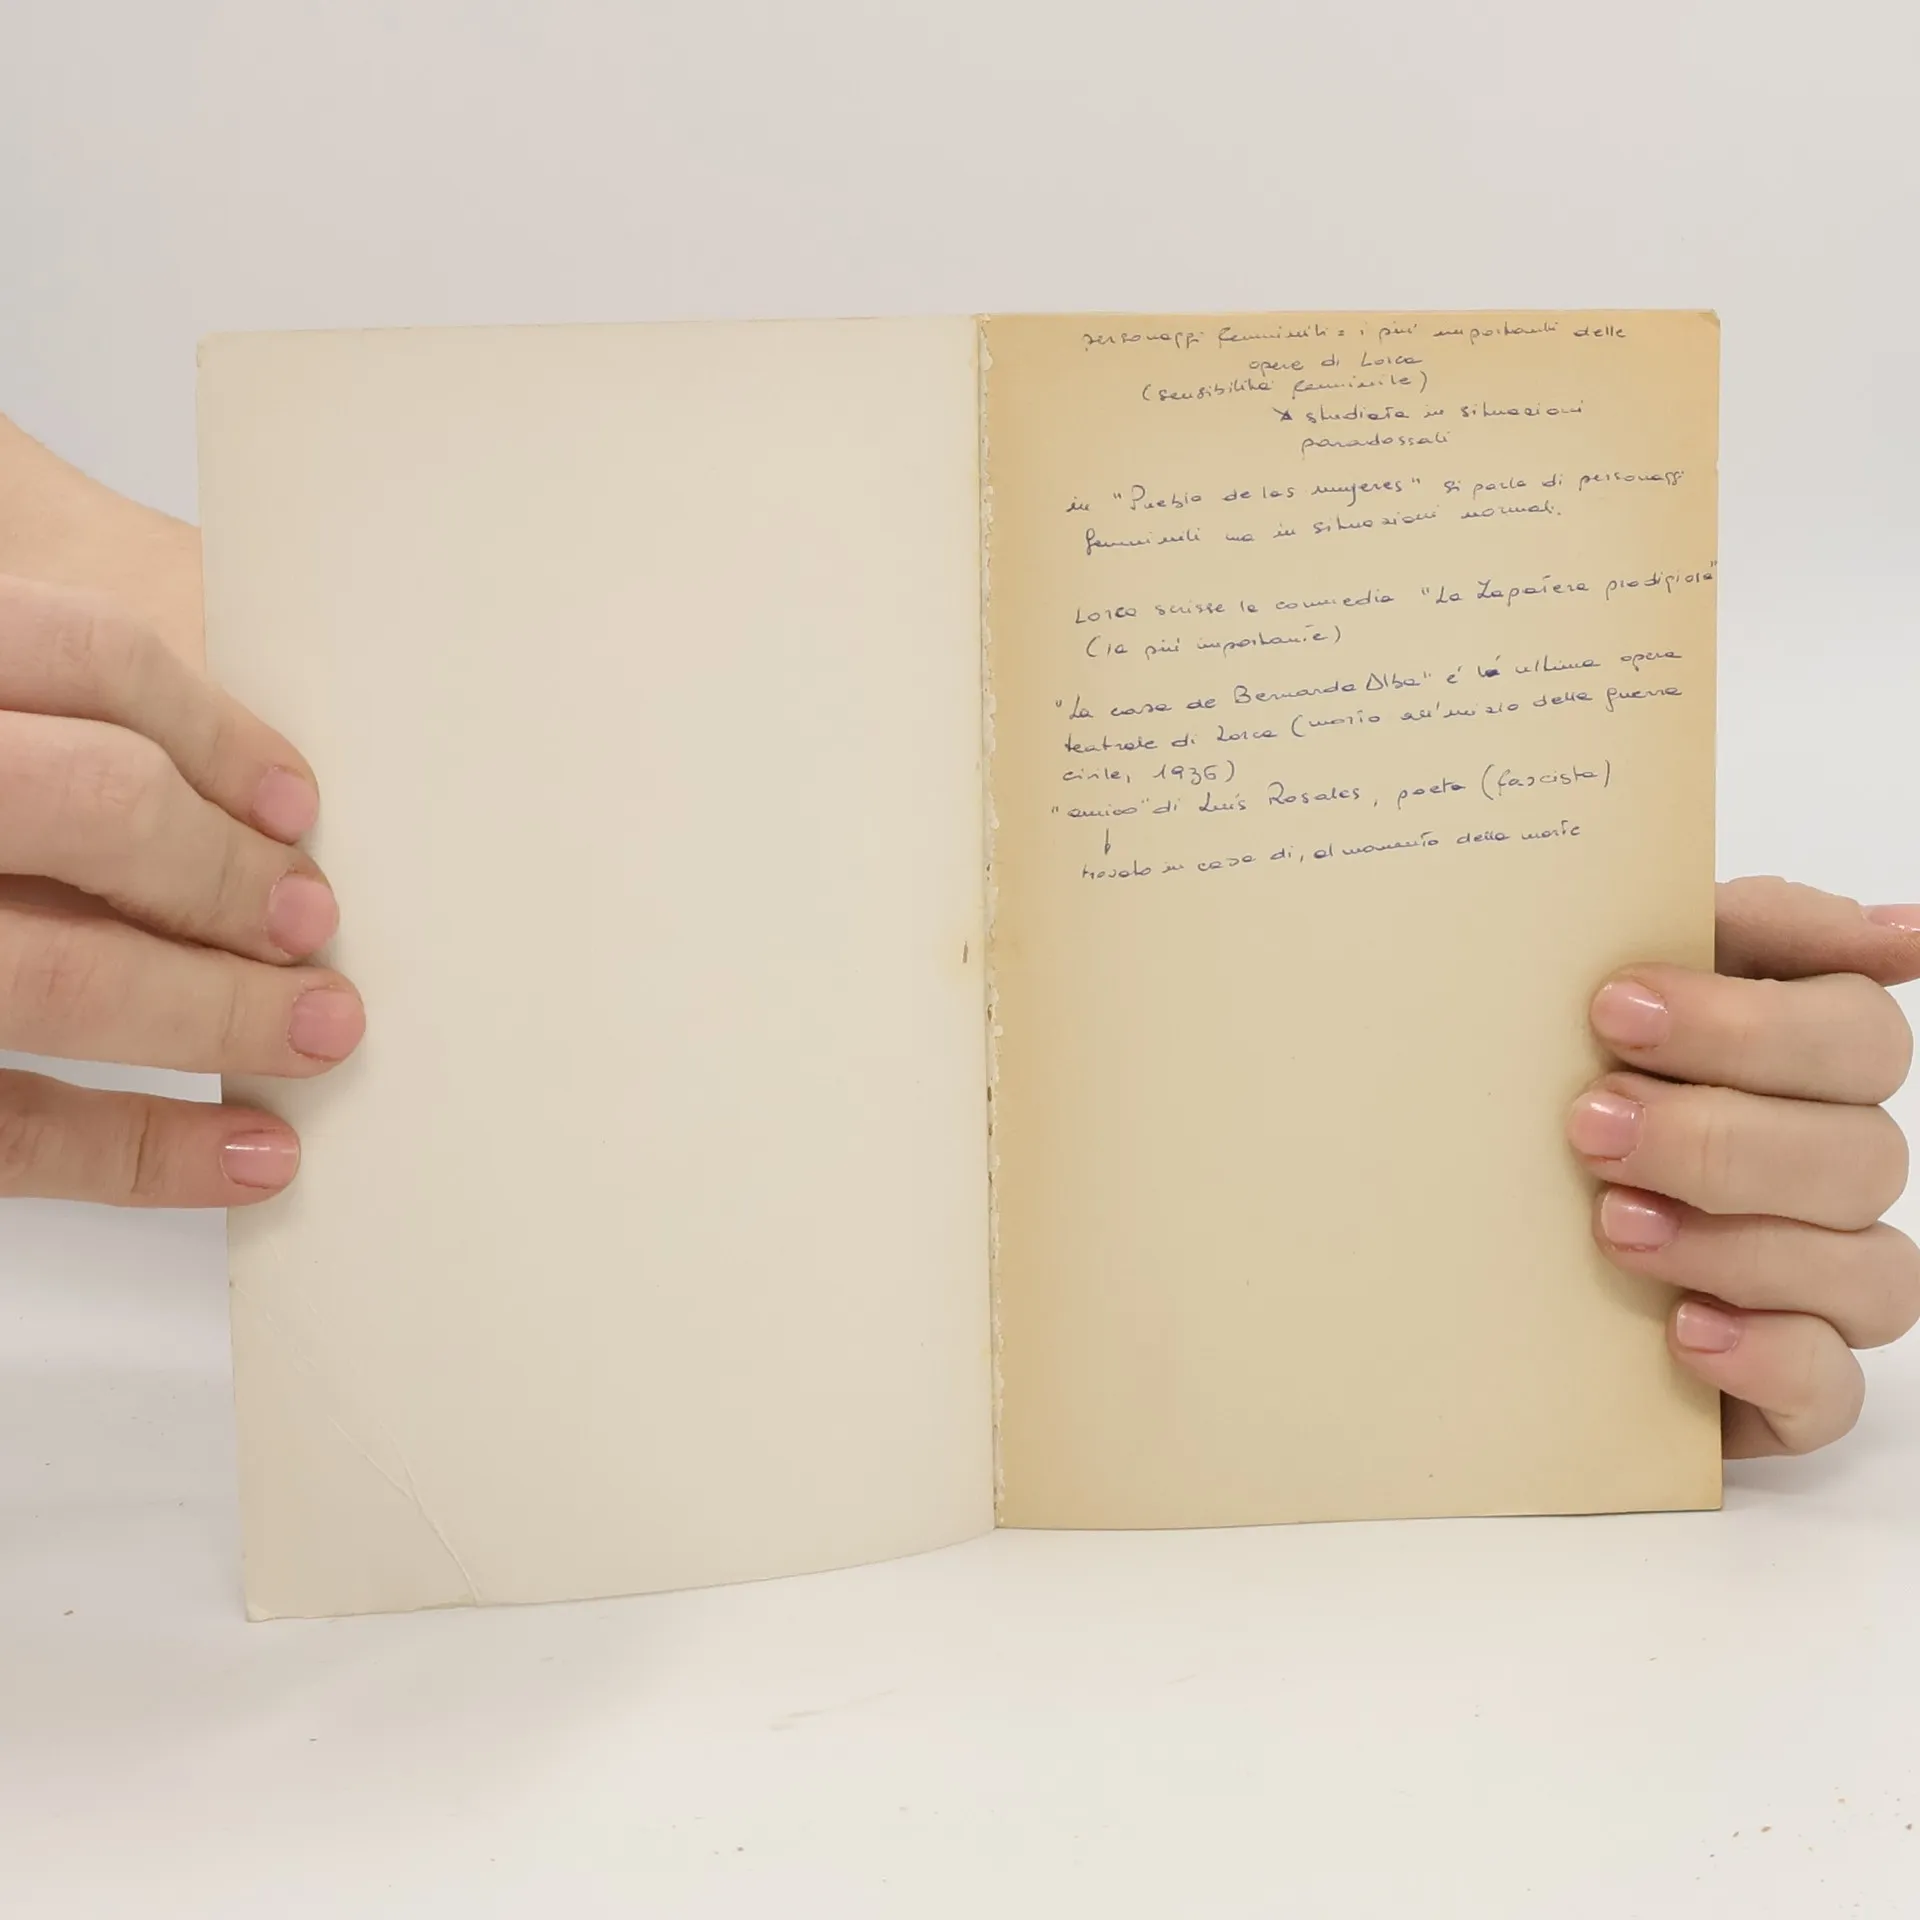 personaggi femminili = i più importanti delle
opere di Lorca
(sensibilità femminile)
↘ studiata in situazioni
paradossali
in "Pueblo de las mujeres" si parla di personaggi
femminili ma in situazioni normali.
Lorca scrisse la commedia "La Zapatera prodigiosa"
(la più importante)
"La casa de Bernarda Alba" é la ultima opera
teatrale di Lorca (morto all'inizio della guerra
civile, 1936)
"amico" di Luís Rosales, poeta (fascista)
↓
trovato in casa di, al momento della morte